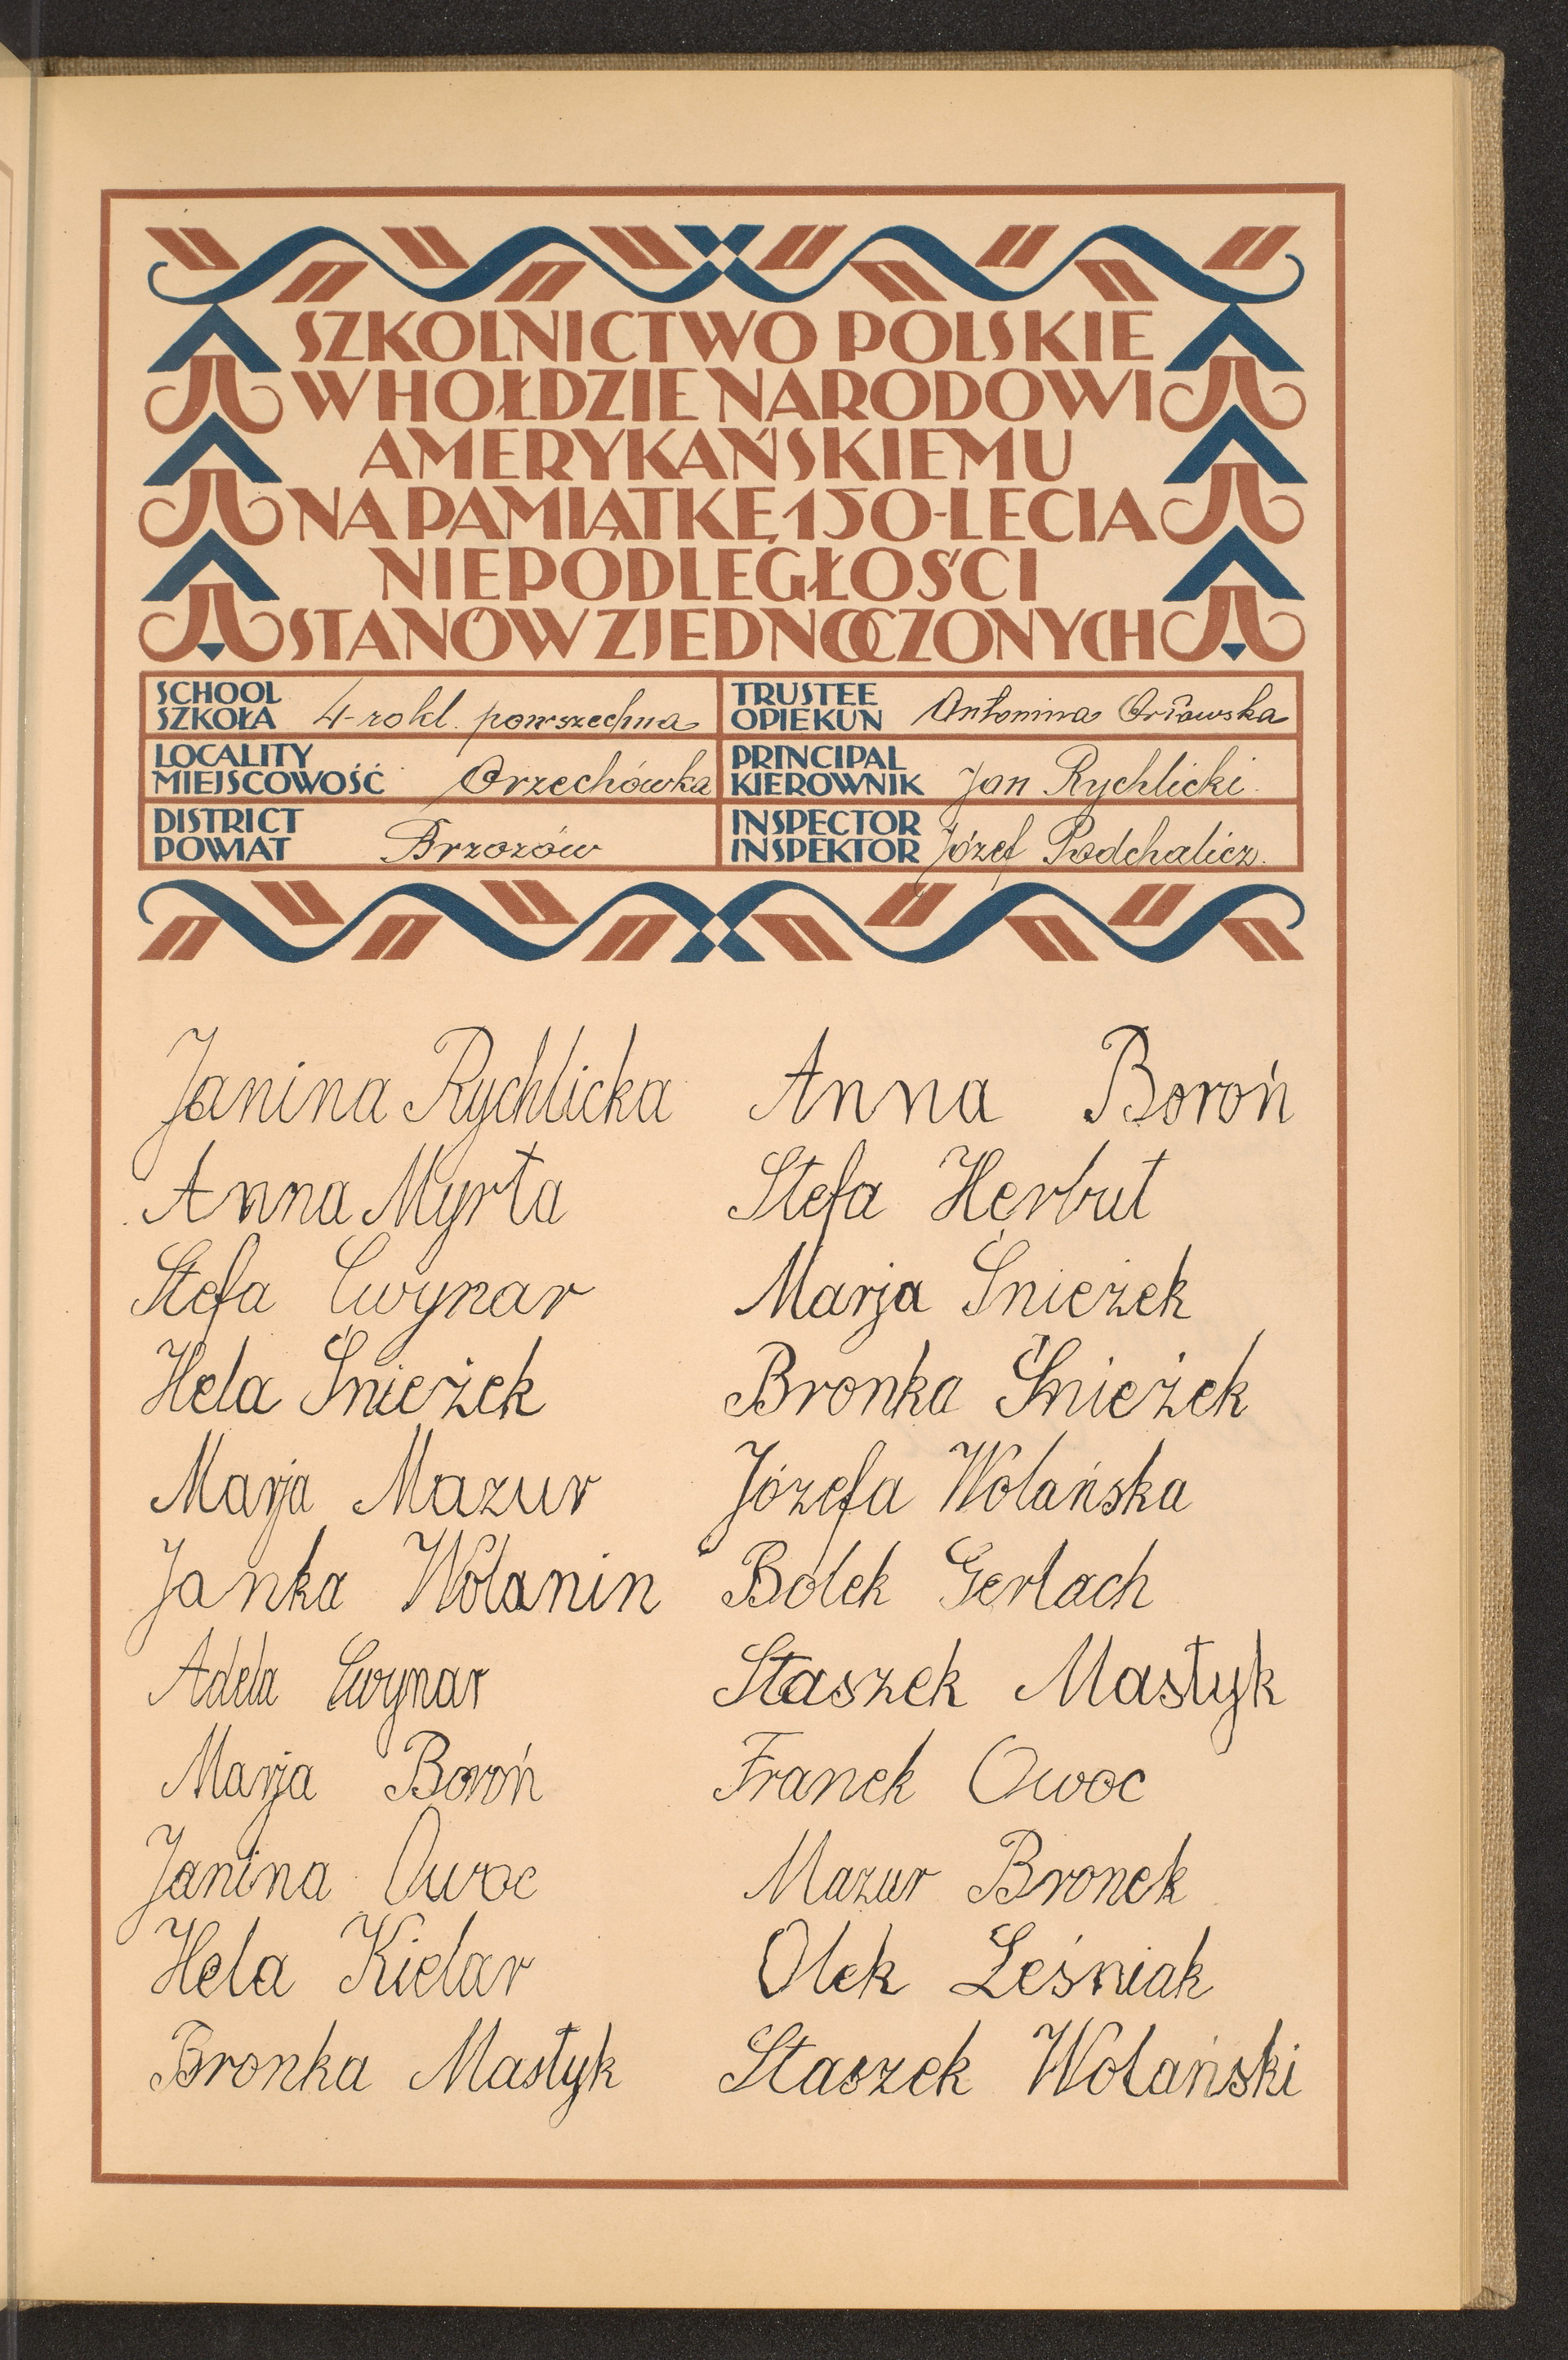 SZKOLNICTWO POLSKIE
W HOŁDZIE NARODOWI
AMERYKAŃSKIEMU
NA PAMIĄTKĘ 150-LECIA
NIEPODLEGŁOŚCI
STANÓW ZJEDNOCZONYCH
SCHOOL
SZKOŁA 4-rokl. powszechna
TRUSTEE
OPIEKUN Antonina Orłowska
LOCALITY
MIEJSCOWOŚĆ Orzechówka
PRINCIPAL
KIEROWNIK Jan Rychlicki.
DISTRICT
POWIAT Brzozów
INSPECTOR
INSPEKTOR Józef Podchalicz.
Janina Rychlicka
Anna Myrta
Stefa Cwynar
Hela Śnieżek
Marja Mazur
Janka Wolanin
Adela Cwynar
Marja Boroń
Janina Owoc
Hela Kielar
Bronka Mastyk
Anna Boroń
Stefa Herbut
Marja Śnieżek
Bronka Śnieżek
Józefa Wolańska
Bolek Gerlach
Staszek Mastyk
Franek Owoc
Mazur Bronek
Olek Leśniak
Staszek Wolański